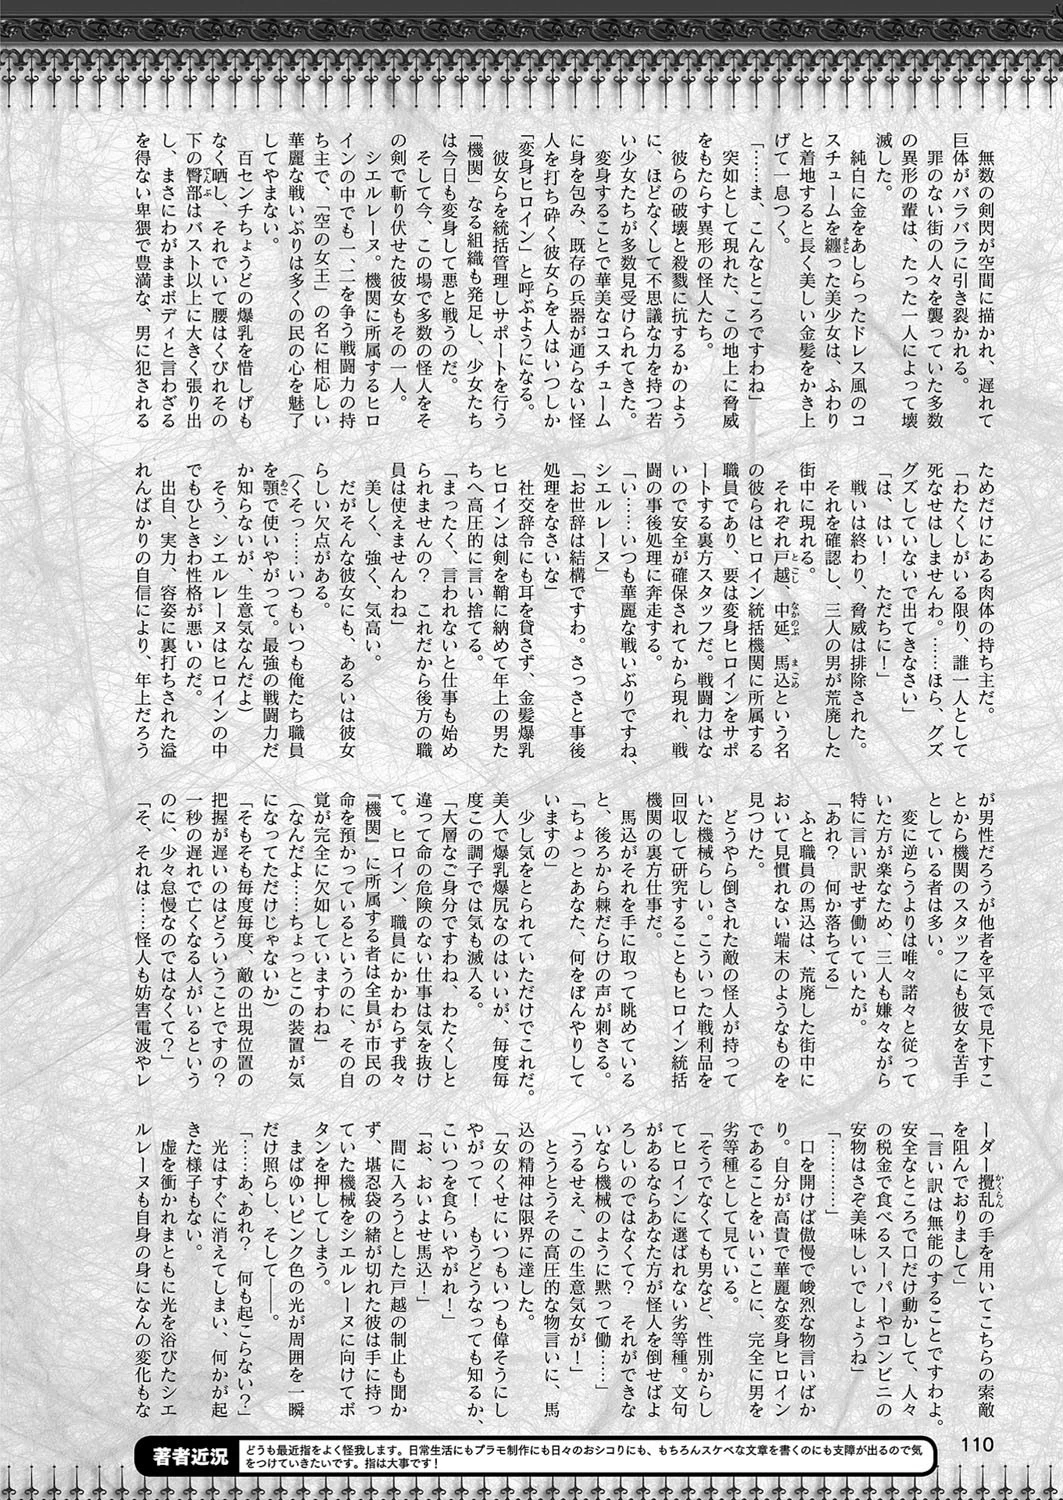 無数の剣閃が空間に描かれ、遅れて
巨体がバラバラに引き裂かれる。
罪のない街の人々を襲っていた多数
の異形の輩は、たった一人によって壊
滅した。
純白に金をあしらったドレス風のコ
スチュームを纏った美少女は、ふわり
と着地すると長く美しい金髪をかき上
げて一息つく。
「……ま、こんなところですわね」
突如として現れた、この地上に脅威
をもたらす異形の怪人たち。
彼らの破壊と殺戮に抗するかのよう
に、ほどなくして不思議な力を持つ若
い少女たちが多数見受けられてきた。
変身することで華美なコスチューム
に身を包み、既存の兵器が通らない怪
人を打ち砕く彼女らを人はいつしか
「変身ヒロイン」と呼ぶようになる。
彼女らを統括管理しサポートを行う
「機関」なる組織も発足し、少女たち
は今日も変身して悪と戦うのだ。
そして今、この場で多数の怪人をそ
の剣で斬り伏せた彼女もその一人。
シエルレーヌ。機関に所属するヒロ
インの中でも一、二を争う戦闘力の持
ち主で、「空の女王」の名に相応しい
華麗な戦いぶりは多くの民の心を魅了
してやまない。
百センチちょうどの爆乳を惜しげも
なく晒し、それでいて腰はくびれその
下の臀部はバスト以上に大きく張り出
し、まさにわがままボディと言わざる
を得ない卑猥で豊満な、男に犯される
ためだけにある肉体の持ち主だ。
「わたくしがいる限り、誰一人として
死なせはしませんわ。……ほら、グズ
グズしていないで出てきなさい」
「は、はい！　ただちに！」
戦いは終わり、脅威は排除された。
それを確認し、三人の男が荒廃した
街中に現れる。
それぞれ戸越、中延、馬込という名
の彼らはヒロイン統括機関に所属する
職員であり、要は変身ヒロインをサポ
ートする裏方スタッフだ。戦闘力はな
いので安全が確保されてから現れ、戦
闘の事後処理に奔走する。
「い……いつも華麗な戦いぶりですね、
シエルレーヌ」
「お世辞は結構ですわ。さっさと事後
処理をなさいな」
社交辞令にも耳を貸さず、金髪爆乳
ヒロインは剣を鞘に納めて年上の男た
ちへ高圧的に言い捨てる。
「まったく、言われないと仕事も始め
られませんの？　これだから後方の職
員は使えませんわね」
美しく、強く、気高い。
だがそんな彼女にも、あるいは彼女
らしい欠点がある。
（くそっ……いつもいつも俺たち職員
を顎で使いやがって。最強の戦闘力だ
か知らないが、生意気なんだよ）
そう、シエルレーヌはヒロインの中
でもひときわ性格が悪いのだ。
出自、実力、容姿に裏打ちされた溢
れんばかりの自信により、年上だろう
が男性だろうが他者を平気で見下すこ
とから機関のスタッフにも彼女を苦手
としている者は多い。
変に逆らうよりは唯々諾々と従って
いた方が楽なため、三人も嫌々ながら
特に言い訳せず働いていたが。
「あれ？　何か落ちてる」
ふと職員の馬込は、荒廃した街中に
おいて見慣れない端末のようなものを
見つけた。
どうやら倒された敵の怪人が持って
いた機械らしい。こういった戦利品を
回収して研究することもヒロイン統括
機関の裏方仕事だ。
馬込がそれを手に取って眺めている
と、後ろから棘だらけの声が刺さる。
「ちょっとあなた、何をぼんやりして
いますの」
少し気をとられていただけでこれだ。
美人で爆乳爆尻なのはいいが、毎度毎
度この調子では気も滅入る。
「大層なご身分ですわね、わたくしと
違って命の危険のない仕事は気を抜け
て。ヒロイン、職員にかかわらず我々
『機関』に所属する者は全員が市民の
命を預かっているというのに、その自
覚が完全に欠如していますわね」
（なんだよ……ちょっとこの装置が気
になってただけじゃないか）
「そもそも毎度毎度、敵の出現位置の
把握が遅いのはどういうことですの？
一秒の遅れで亡くなる人がいるという
のに、少々怠慢なのではなくて？」
「そ、それは……怪人も妨害電波やレ
ーダー攪乱の手を用いてこちらの索敵
を阻んでおりまして」
「言い訳は無能のすることですわよ。
安全なところで口だけ動かして、人々
の税金で食べるスーパーやコンビニの
安物はさぞ美味しいでしょうね」
「…………」
口を開けば傲慢で峻烈な物言いばか
り。自分が高貴で華麗な変身ヒロイン
であることをいいことに、完全に男を
劣等種として見ている。
「そうでなくても男など、性別からし
てヒロインに選ばれない劣等種。文句
があるならあなた方が怪人を倒せばよ
ろしいのではなくて？　それができな
いなら機械のように黙って働……」
「うるせえ、この生意気女が！」
とうとうその高圧的な物言いに、馬
込の精神は限界に達した。
「女のくせにいつもいつも偉そうにし
やがって！　もうどうなっても知るか、
こいつを食らいやがれ！」
「お、おいよせ馬込！」
間に入ろうとした戸越の制止も聞か
ず、堪忍袋の緒が切れた彼は手に持っ
ていた機械をシエルレーヌに向けてボ
タンを押してしまう。
まばゆいピンク色の光が周囲を一瞬
だけ照らし、そして――。
「……あ、あれ？　何も起こらない？」
光はすぐに消えてしまい、何かが起
きた様子もない。
虚を衝かれまともに光を浴びたシエ
ルレーヌも自身の身になんの変化もな
110
著者近況
どうも最近指をよく怪我します。日常生活にもプラモ制作にも日々のおシコりにも、もちろんスケベな文章を書くのにも支障が出るので気
をつけていきたいです。指は大事です！